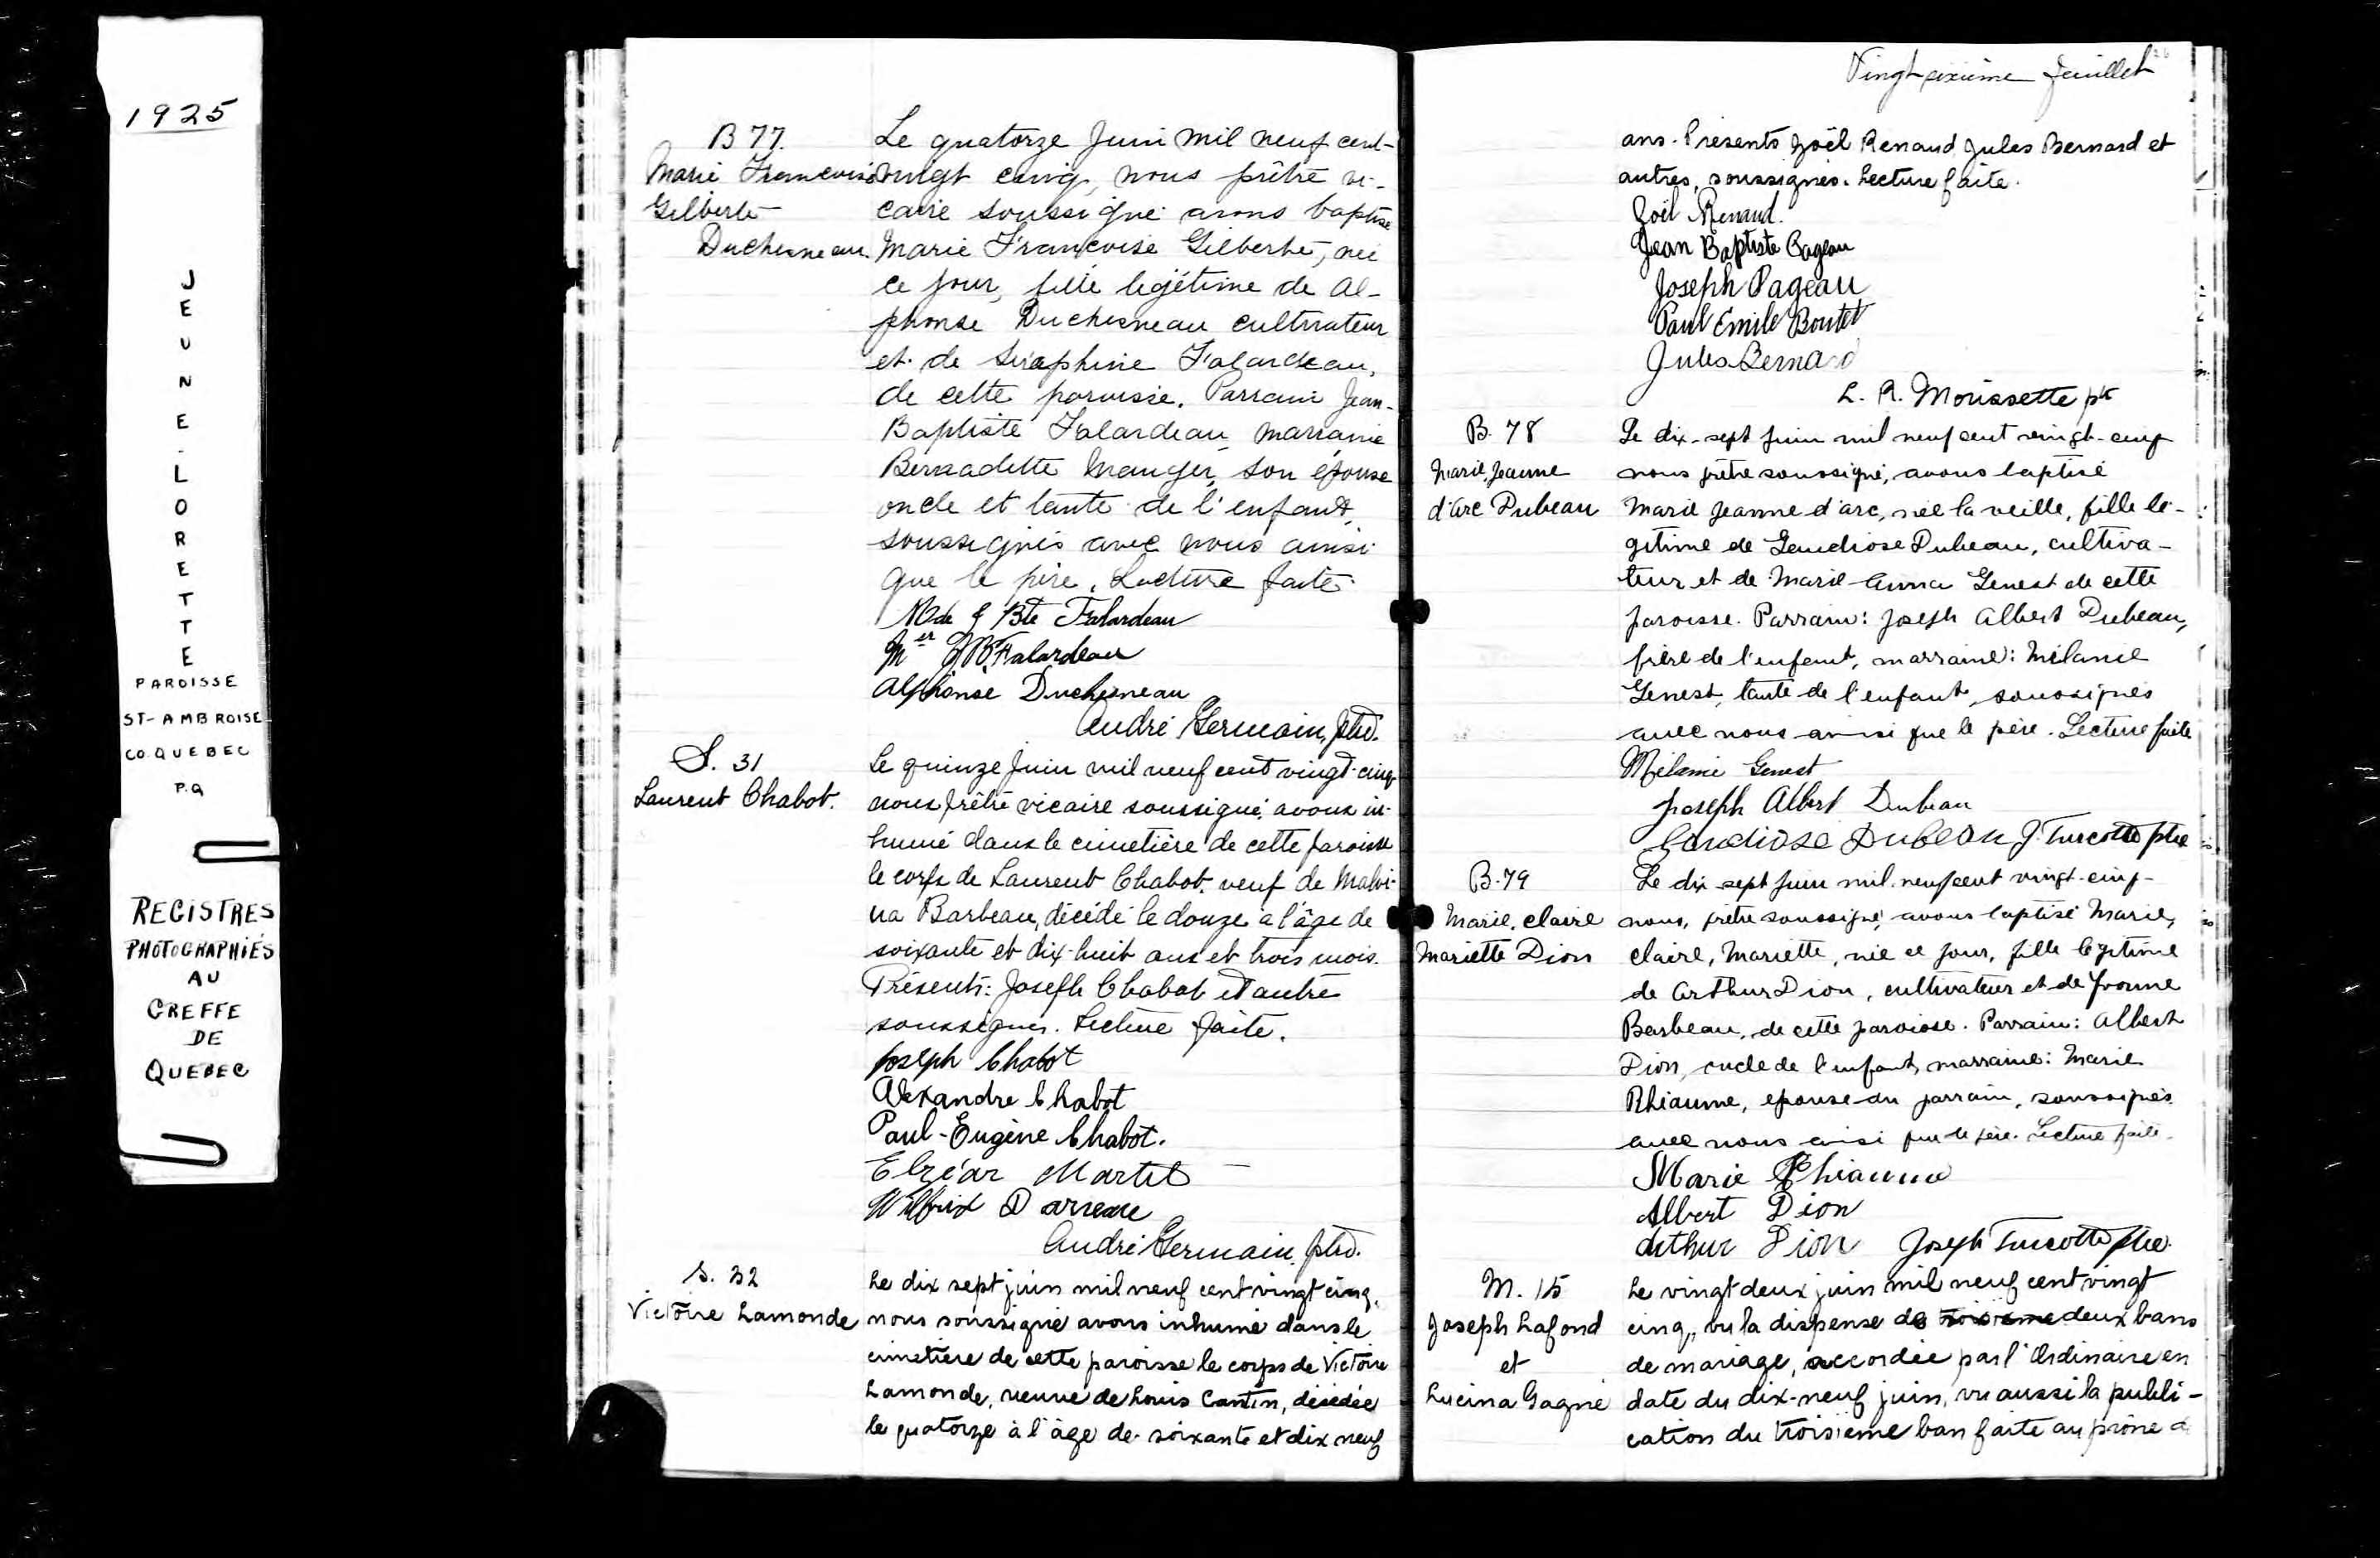 1925
JEUNE-LORETTE
PAROISSE
ST-AMBROISE
CO. QUEBEC
P.Q
REGISTRES
PHOTOGRAPHIÉS
AU
GREFFE
DE
QUEBEC
B 77.
Marie Francoise
Gilberte
Duchesneau.
Le quatorze Juin mil neuf cent-
vingt cinq, nous prêtre vi-
caire soussigné avons baptisé
Marie Francoise Gilberte, née
ce jour, fille legitime de Al-
phonse Duchesneau cultivateur
et de Séraphine Falardeau,
de cette paroisse. Parrain Jean-
Baptiste Falardeau marraine
Bernadette Mauger, son épouse
oncle et tante de l'enfant,
soussignés avec nous ainsi
que le père. Lecture faite.
Mde J Bte Falardeau
Mer J B Falardeau
Alphonse Duchesneau
André Germain, ptre.
S. 31
Laurent Chabot.
Le quinze Juin mil neuf cent vingt-cinq
nous prêtre vicaire soussigné, avons in-
humé dans le cimetière de cette paroisse
le corps de Laurent Chabot, veuf de Malvi-
na Barbeau, décédé le douze à l'âge de
soixante et dix-huit ans et trois mois.
Présents: Joseph Chabot et autres
soussignés. Lecture faite.
Joseph Chabot
Alexandre Chabot
Paul-Eugène Chabot.
Elzéar Martel
Wilfrid Darveau
André Germain, ptre.
S. 32
Victoire Lamonde
Le dix sept juin mil neuf cent vingt cinq,
nous soussigné avons inhumé dans le
cimetière de cette paroisse le corps de Victoire
Lamonde, veuve de Louis Cantin, décédée
le quatorze à l'âge de soixante et dix neuf
Vingt sixième feuillet
26
ans. Présents Joël Renaud Jules Bernard et
autres, soussignés. Lecture faite.
Joël Renaud.
Jean Baptiste Pageau
Joseph Pageau
Paul Emile Boutet
Jules Bernard
L. R. Morissette ptr
B. 78
Marie, Jeanne
d'arc Dubeau
Le dix-sept juin mil neuf cent vingt-cinq
nous prêtre soussigné, avons baptisé
Marie Jeanne d'arc, née la veille, fille lé-
gitime de Gaudiose Dubeau, cultiva-
teur et de Marie-Anna Genest de cette
paroisse. Parrain: Joseph Albert Dubeau,
frère de l'enfant, marraine: Mélanie
Genest, tante de l'enfant, soussignés
avec nous ainsi que le père. Lecture faite
Mélanie Genest
Joseph Albert Dubeau
Gaudiose Dubeau J. Turcotte ptre
B. 79
Marie, Claire
Mariette Dion
Le dix-sept juin mil neuf cent vingt-cinq-
nous, prêtre soussigné, avons baptisé Marie,
Claire, Mariette, née ce jour, fille légitime
de Arthur Dion, cultivateur et de Yvonne
Barbeau, de cette paroisse. Parrain: Albert
Dion, oncle de l'enfant, marraine: Marie
Rhéaume, épouse du parrain, soussignés
avec nous ainsi que le père. Lecture faite.
Marie Rhéaume
Albert Dion
Arthur Dion Joseph Turcotte ptre
M. 15
Joseph Lafond
et
Lucina Gagné
Le vingt deux juin mil neuf cent vingt
cinq, vu la dispense de troisième deux bans
de mariage, accordée par l'Ordinaire en
date du dix-neuf juin, vu aussi la publi-
cation du troisième ban faite au prône d